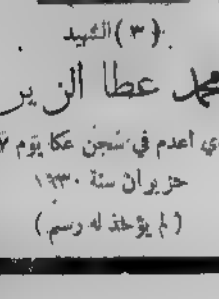 (٣) الشهيد
محمد عطا الزير
اعدم في سجن عكا يوم
حزيران سنة ١٩٣٠
(لم يؤخذ له رسم)